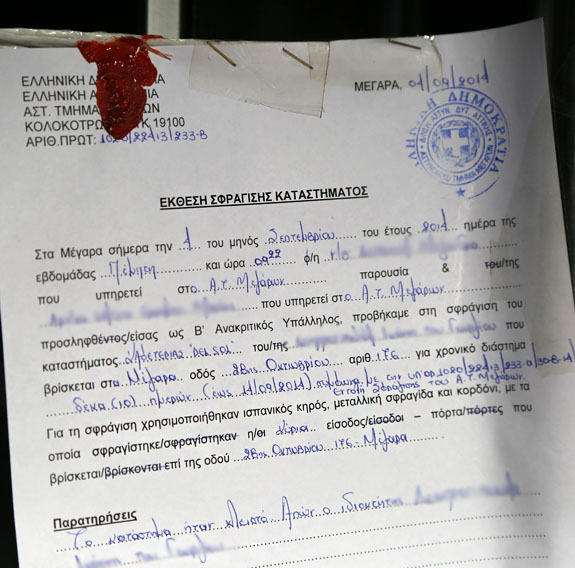 ΕΛΛΗΝΙΚΗ ΔΗΜΟΚΡΑΤΙΑ
ΜΕΓΑΡΑ, 01/09/2011
ΕΛΛΗΝΙΚΗ
ΑΣΤ. ΤΜΗΜΑ
ΚΟΛΟΚΟΤΡΩ Τ.Κ 19100
ΑΡΙΘ.ΠΡΩΤ: 1020/22/13/233-Β
ΕΛΛΗΝΙΚΗ ΔΗΜΟΚΡΑΤΙΑ
ΕΚΘΕΣΗ ΣΦΡΑΓΙΣΗΣ ΚΑΤΑΣΤΗΜΑΤΟΣ
Στα Μέγαρα σήμερα την 1 του μηνός Σεπτεμβρίου του έτους 2011 ημέρα της
εβδομάδας Πέμπτη και ώρα 09 22 ο/η
που υπηρετεί στο Α.Τ. Μεγάρων παρουσία & του/της
που υπηρετεί στο Α.Τ. Μεγάρων
προσληφθέντος/είσας ως Β' Ανακριτικός Υπάλληλος, προβήκαμε στη σφράγιση του
καταστήματος ΔΕΛ SOL του/της που
βρίσκεται στα Μέγαρα οδός 28ης Οκτωβρίου αριθ. 176 για χρονικό διάστημα
δέκα (10) ημερών (έως 11/09/2011) σύμφωνα με την υπ' αρ. 1020/22/13/233-α/30-8-11
Εντολή Σφράγισης του Α.Τ. Μεγάρων
Για τη σφράγιση χρησιμοποιήθηκαν ισπανικός κηρός, μεταλλική σφραγίδα και κορδόνι, με τα
οποία σφραγίστηκε/σφραγίστηκαν η/οι κύρια είσοδος/είσοδοι – πόρτα/πόρτες που
βρίσκεται/βρίσκονται επί της οδού 28ης Οκτωβρίου 176 - Μέγαρα
Παρατηρήσεις
Το κατάστημα ήταν κλειστό Απών ο ιδιοκτήτης
του Γεωργίου